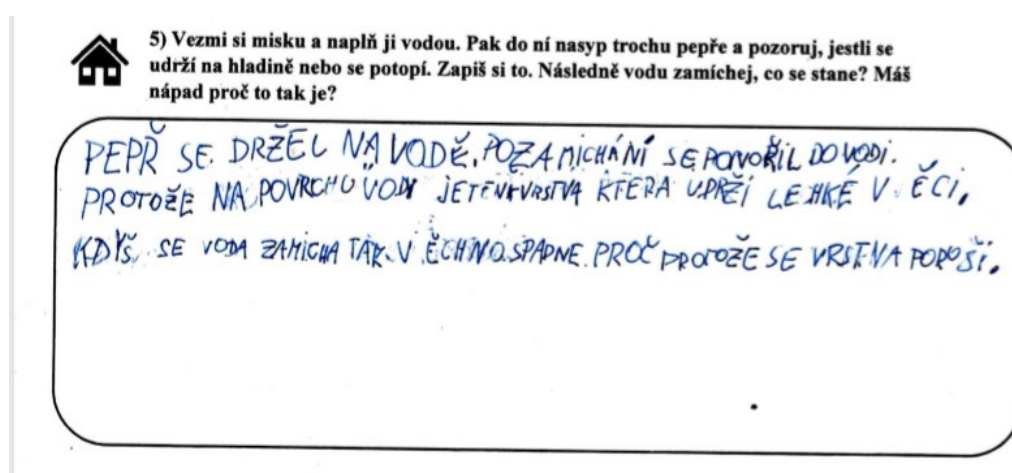 5) Vezmi si misku a naplň ji vodou. Pak do ní nasyp trochu pepře a pozoruj, jestli se
udrží na hladině nebo se potopí. Zapiš si to. Následně vodu zamíchej, co se stane? Máš
nápad proč to tak je?
PEPŘ SE DRŽEL NA VODĚ. POZAMICHÁNÍ SE PONOŘIL DO VODI.
PROTOŽE NA POVRCHU VODY JE TENKVRSTVA KTERA UDRŽÍ LEHKÉ V ĚCI,
KDYŠ SE VODA ZAMICHA TAK V ĚCHNO SPADNE. PROČ PROTOŽE SE VRSTVA POROŠÍ.